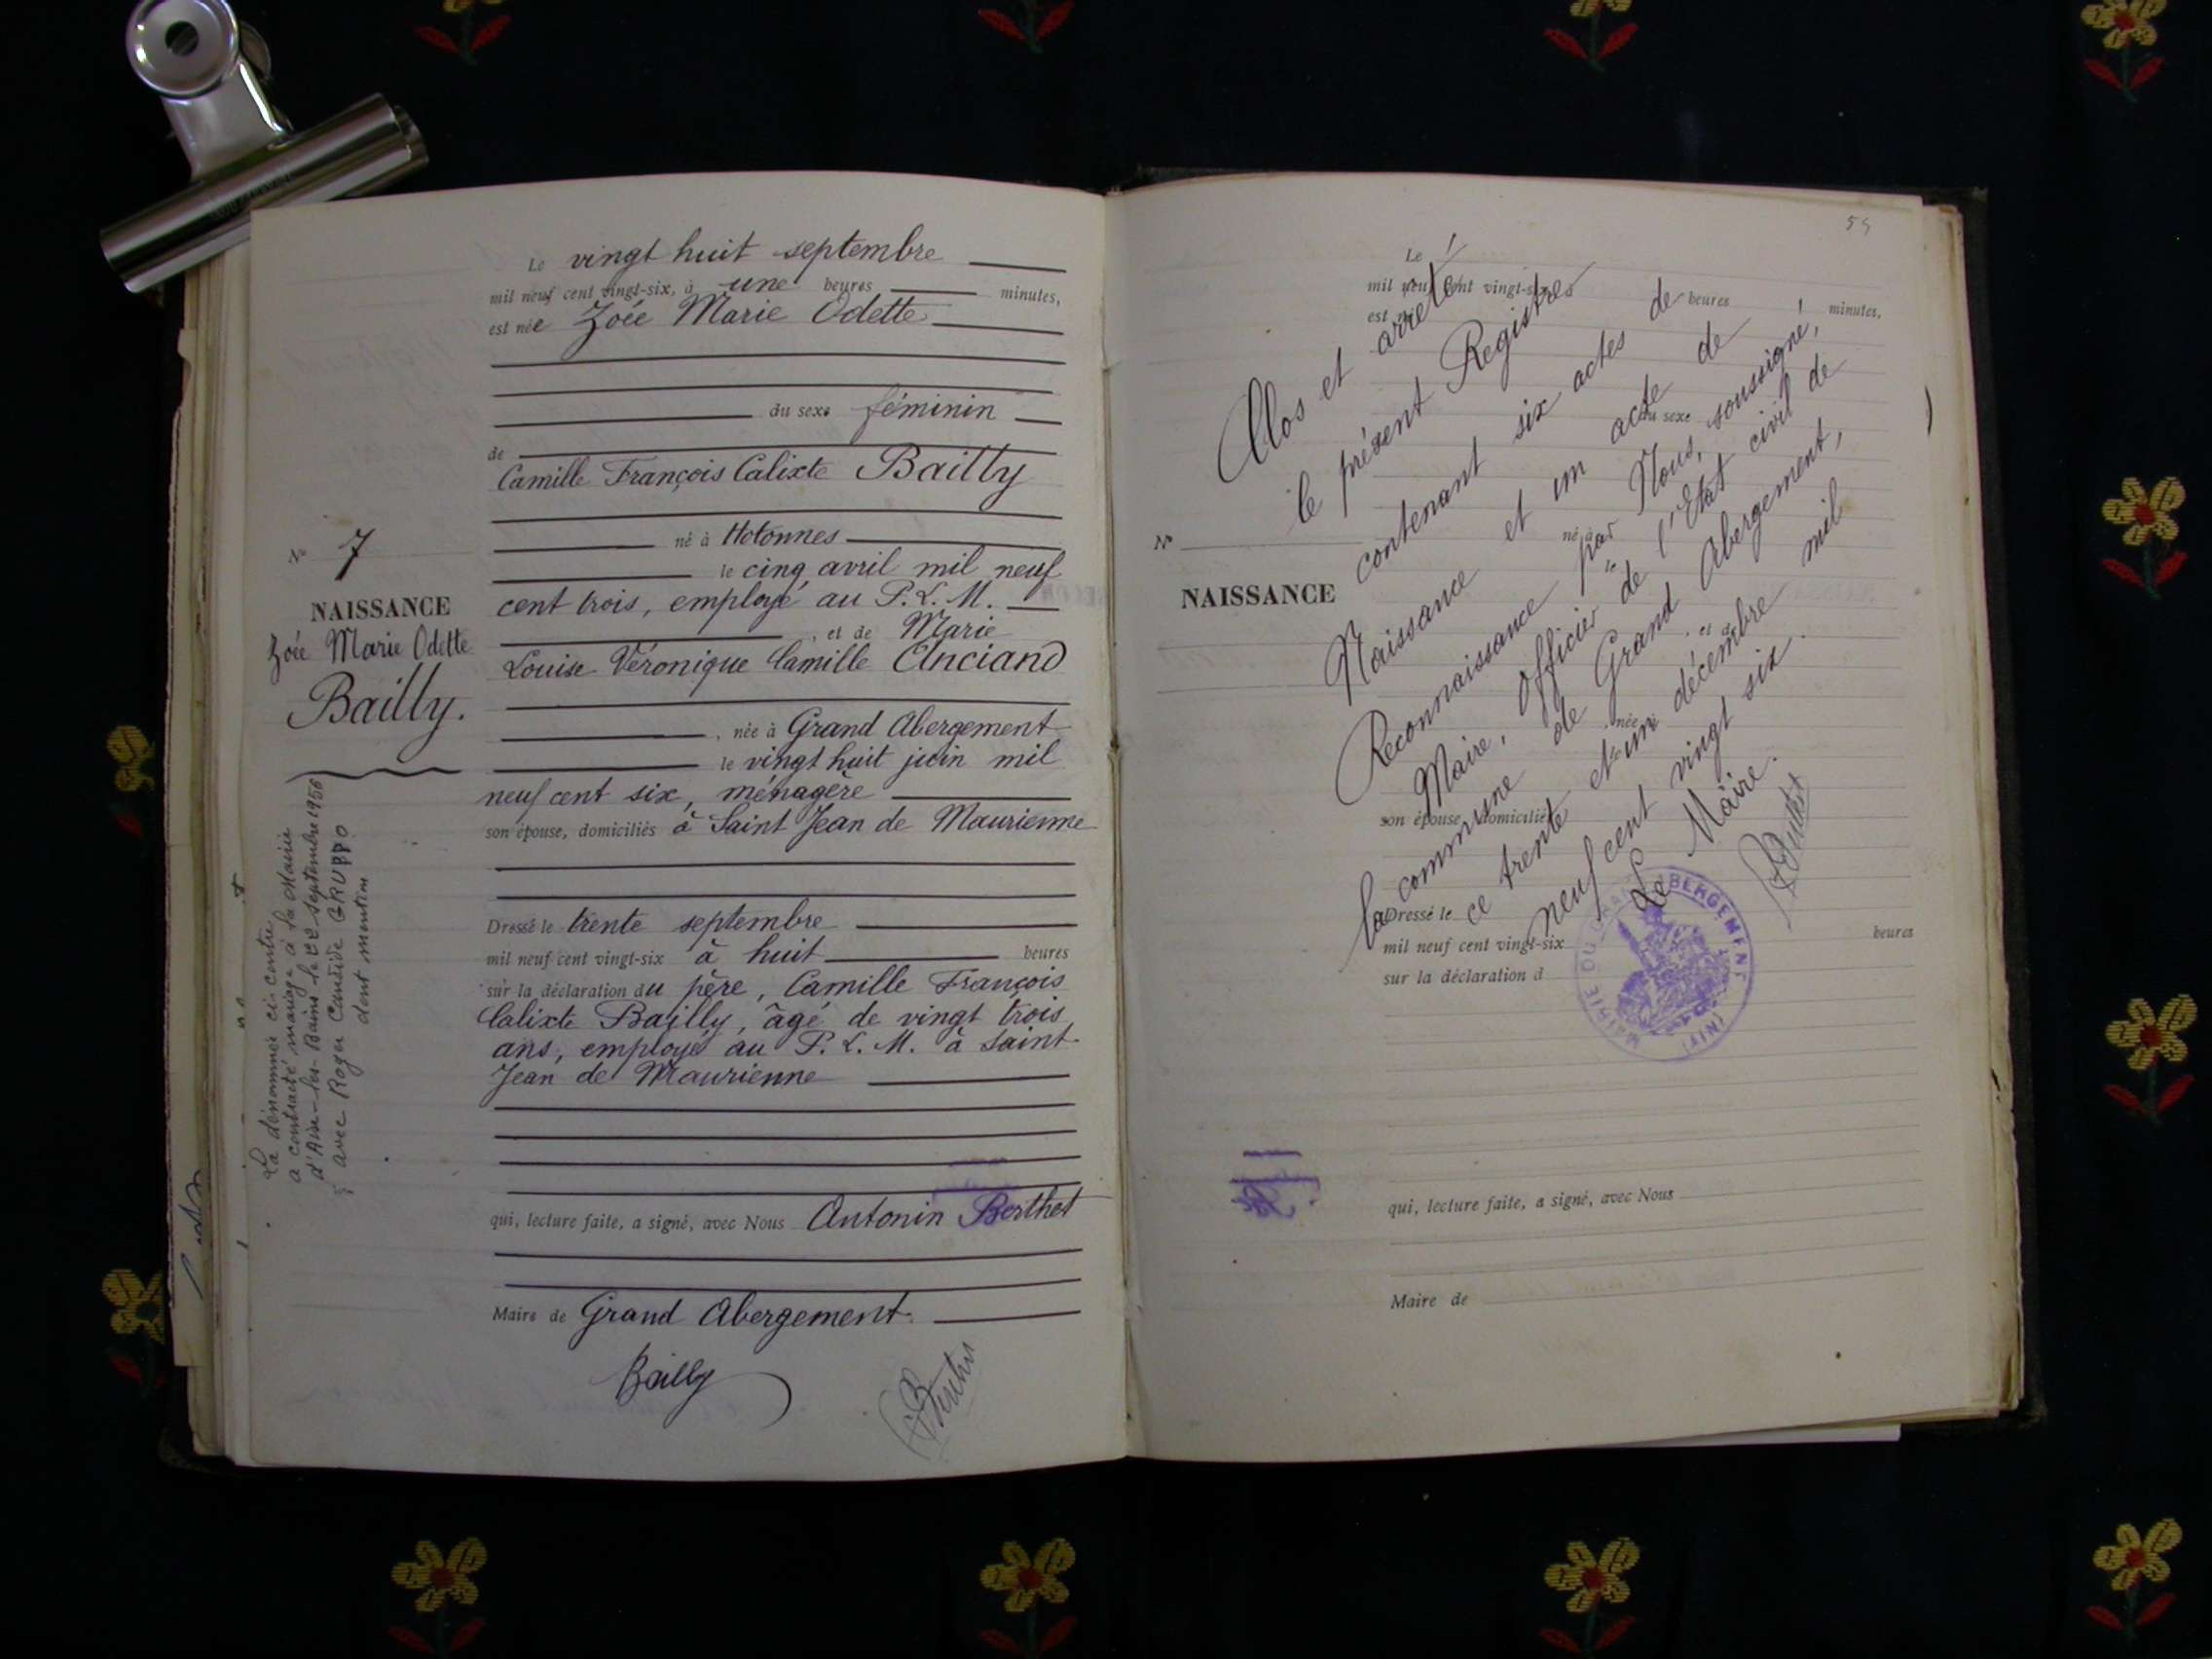 Le vingt huit septembre
mil neuf cent vingt-six, à une heures minutes,
est née Zoée Marie Odette
du sexe féminin
de
Camille François Calixte Bailly
né à Hotonnes
le cinq avril mil neuf
cent trois, employé au P.L.M.
, et de Marie
Louise Véronique Camille Anciand
, née à Grand Abergement
le vingt huit juin mil
neuf cent six, ménagère
son épouse, domiciliés à Saint Jean de Maurienne
Dressé le trente septembre
mil neuf cent vingt-six à huit heures
sur la déclaration du père, Camille François
Calixte Bailly, âgé de vingt trois
ans, employé au P.L.M. à Saint
Jean de Maurienne
qui, lecture faite, a signé, avec Nous Antonin Berthet
Maire de Grand Abergement.
Bailly
N° 7
NAISSANCE
Zoée Marie Odette
Bailly.
La dénommée ci-contre
a contracté mariage à la Mairie
d'Aix-les-Bains le 22 septembre 1956
avec Roger Candide GRUPPO
dont mention
54
Le
mil neuf cent vingt-six
heures minutes,
est né
du sexe
né à
le
N°
NAISSANCE
, et de
, née à
son épouse, domiciliés
Dressé le
mil neuf cent vingt-six
heures
sur la déclaration d
qui, lecture faite, a signé, avec Nous
Maire de
Clos et arrêté
le présent Registres
contenant six actes de
Naissance et un acte de
Reconnaissance par Nous, soussigné,
Maire, Officier de l'Etat civil de
la commune de Grand Abergement,
ce trente et un décembre mil
neuf cent vingt six.
Le Maire.
MAIRIE DU GRAND ABERGEMENT (AIN)